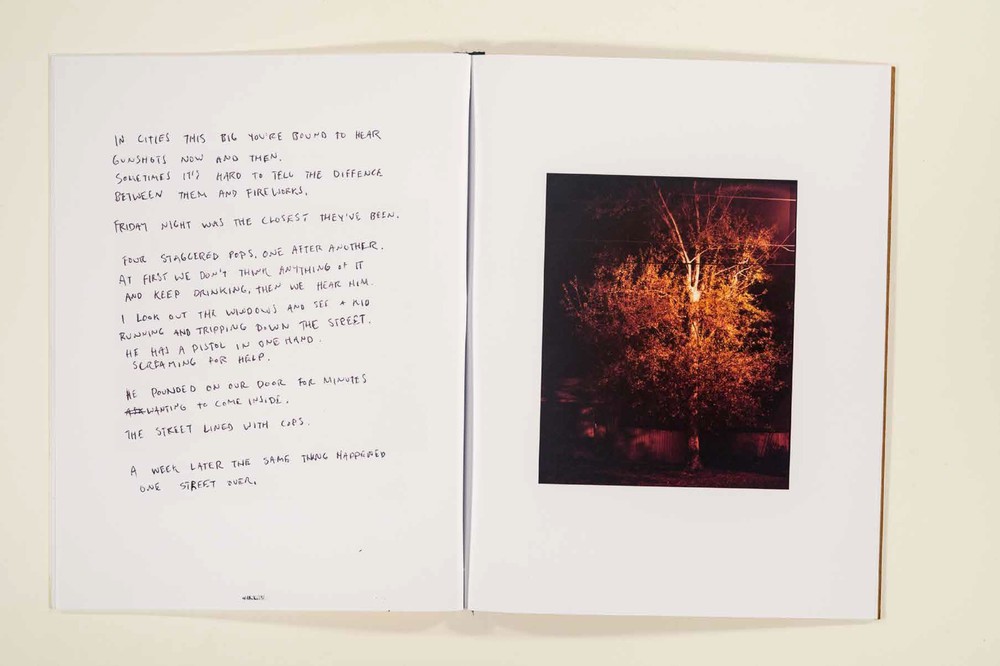 IN CITIES THIS BIG YOU'RE BOUND TO HEAR
GUNSHOTS NOW AND THEN.
SOMETIMES IT'S HARD TO TELL THE DIFFENCE
BETWEEN THEM AND FIREWORKS.
FRIDAY NIGHT WAS THE CLOSEST THEY'VE BEEN.
FOUR STAGGERED POPS, ONE AFTER ANOTHER.
AT FIRST WE DON'T THINK ANYTHING OF IT
AND KEEP DRINKING, THEN WE HEAR HIM.
I LOOK OUT THE WINDOWS AND SEE A KID
RUNNING AND TRIPPING DOWN THE STREET.
HE HAS A PISTOL IN ONE HAND.
SCREAMING FOR HELP.
HE POUNDED ON OUR DOOR FOR MINUTES
WANTING TO COME INSIDE.
THE STREET LINED WITH COPS.
A WEEK LATER THE SAME THING HAPPENED
ONE STREET OVER.